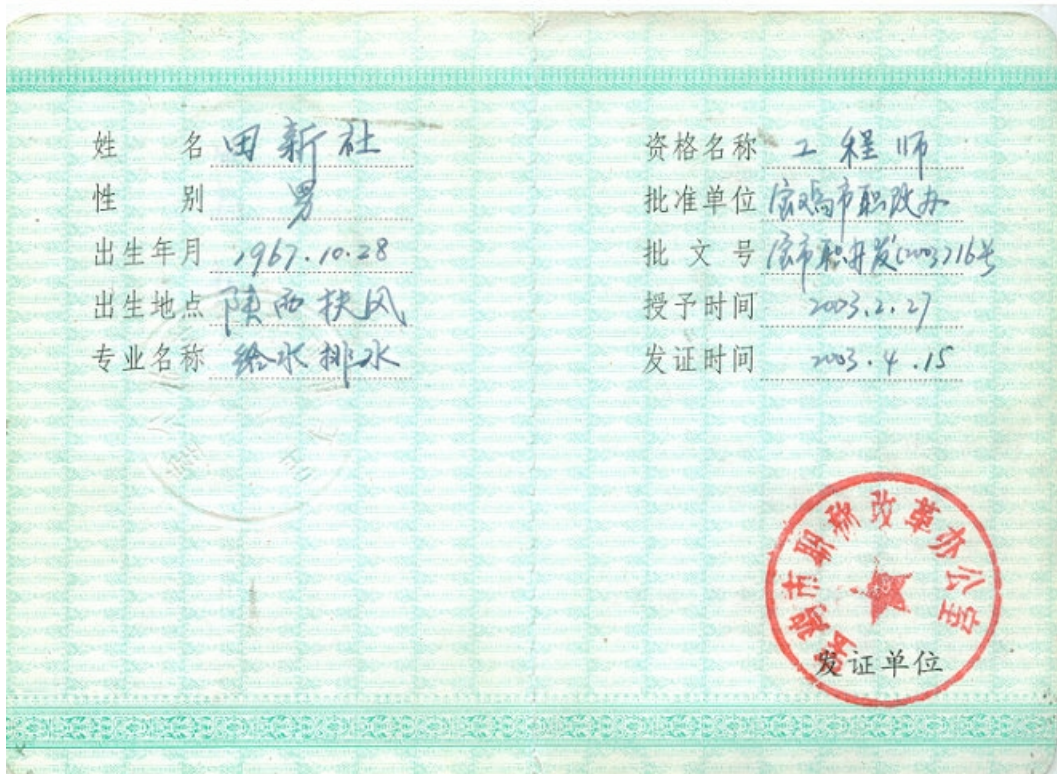 姓 名 田新社
性 别 男
出生年月 1967.10.28
出生地点 陕西扶风
专业名称 给水排水
资格名称 工程师
批准单位 宝鸡市职改办
批文号 宝市职办发(2003)16号
授予时间 2003.2.27
发证时间 2003.4.15
宝鸡市职称改革办公室
发证单位